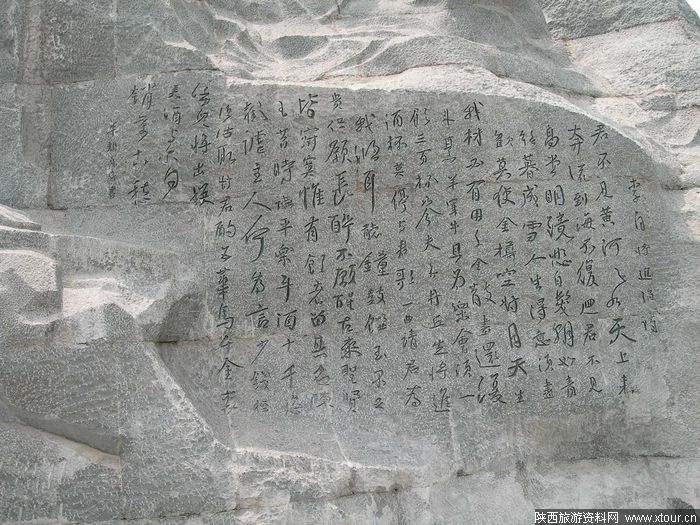 李白将进酒
君不见黄河之水天上来
奔流到海不复回君不见
高堂明镜悲白发朝如青
丝暮成雪人生得意须尽
欢莫使金樽空对月天生
我材必有用千金散尽还复
来烹羊宰牛且为乐会须一
饮三百杯岑夫子丹丘生将进
酒杯莫停与君歌一曲请君为
我倾耳听钟鼓馔玉不足
贵但愿长醉不愿醒古来圣贤
皆寂寞惟有饮者留其名陈
王昔时宴平乐斗酒十千恣
欢谑主人何为言少钱径
须沽取对君酌五花马千金裘
呼儿将出换
美酒与尔同
销万古愁
陕西旅游资料网 www.xtour.cn